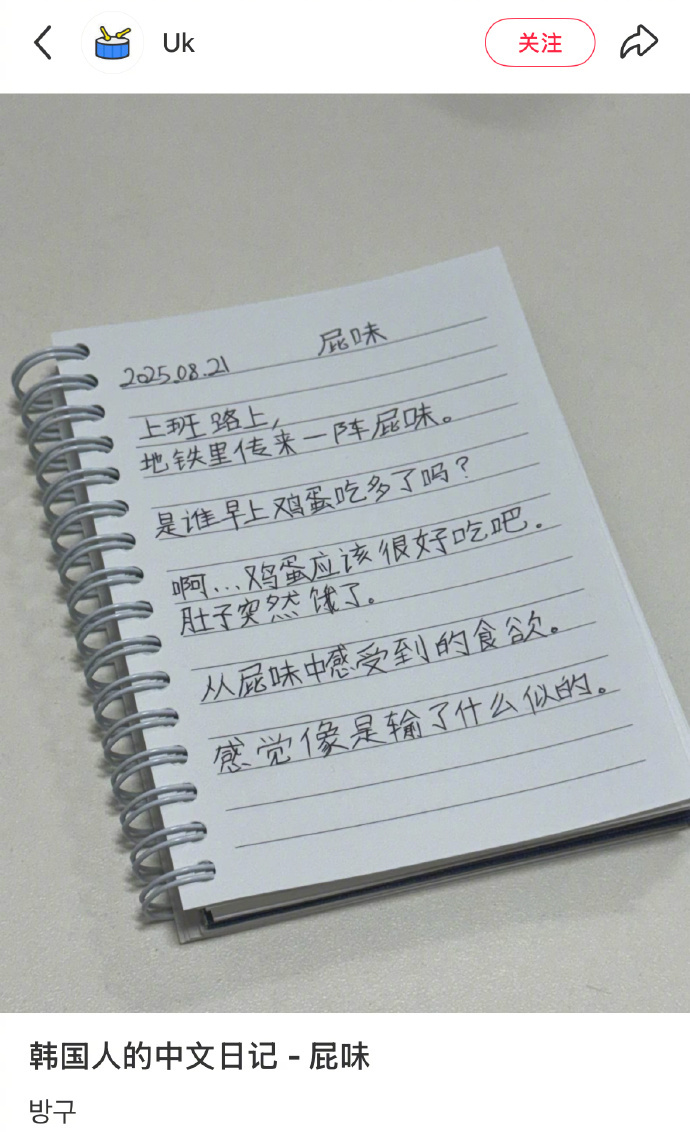 Uk
关注
2025.08.21 屁味
上班路上,
地铁里传来一阵屁味。
是谁早上鸡蛋吃多了吗?
啊...鸡蛋应该很好吃吧.
肚子突然饿了。
从屁味中感受到的食欲。
感觉像是输了什么似的。
韩国人的中文日记 - 屁味
방구